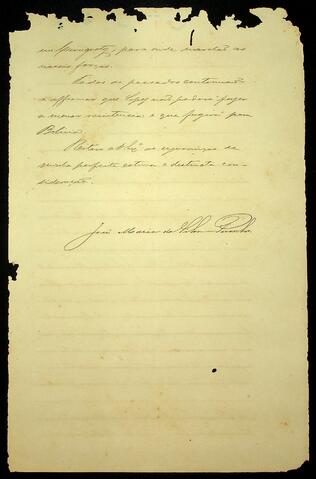 em Curuguaty, para onde marchão as
nossas forças.
Todos os passados continuão
a affirmar que Lopez não poderá fazer
a menor resistencia e que fugirá para
Bolivia.
a V. Exª as seguranças de
minha perfeita estima e distincta con-
sideração.
José Maria da Silva Paranhos